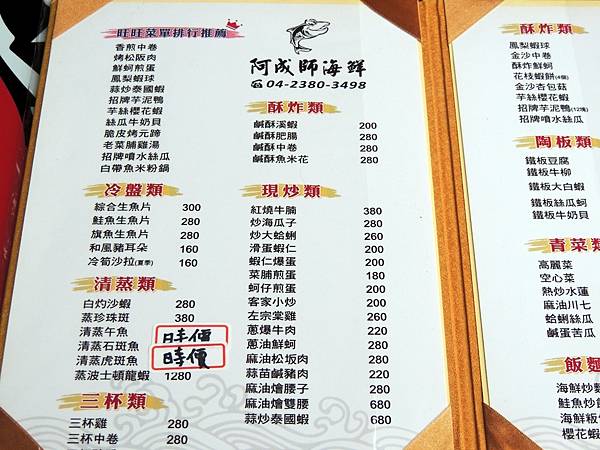 旺旺菜單排行推薦
香煎中卷
烤松阪肉
鮮蚵煎蛋
鳳梨蝦球
蒜炒泰國蝦
招牌芋泥鴨
芋絲櫻花蝦
絲瓜牛奶貝
脆皮烤元蹄
老菜脯雞湯
招牌噴水絲瓜
白帶魚米粉鍋
冷盤類
綜合生魚片 300
鮭魚生魚片 280
旗魚生魚片 280
和風豬耳朵 160
冷筍沙拉(夏季) 160
清蒸類
白灼沙蝦 280
蒸珍珠斑 380
清蒸午魚 時價
清蒸石斑魚
清蒸虎斑魚 時價
蒸波士頓龍蝦 1280
三杯類
三杯雞 280
三杯中卷 280
阿成師海鮮
☎04-2380-3498
酥炸類
鹹酥溪蝦 200
鹹酥肥腸 280
鹹酥中卷 280
鹹酥魚米花 280
現炒類
紅燒牛腩 380
炒海瓜子 280
炒大蛤蜊 260
滑蛋蝦仁 200
蝦仁爆蛋 280
菜脯煎蛋 180
蚵仔煎蛋 200
客家小炒 200
左宗棠雞 260
蔥爆牛肉 220
蔥油鮮蚵 280
麻油松坂肉 280
蒜苗鹹豬肉 220
麻油燴腰子 280
麻油燴雙腰 680
蒜炒泰國蝦 680
酥炸類
鳳梨蝦球
金沙中卷
酥炸鮮蚵
花枝蝦餅(4個)
金沙杏包菇
芋絲櫻花蝦
招牌芋泥鴨(12塊)
招牌噴水絲瓜
陶板類
鐵板豆腐
鐵板牛柳
鐵板大白蝦
鐵板絲瓜蚵
鐵板牛奶貝
青菜類
高麗菜
空心菜
熱炒水蓮
麻油川七
蛤蜊絲瓜
鹹蛋苦瓜
飯麵
海鮮炒
鮭魚炒
海鮮粄
櫻花蝦